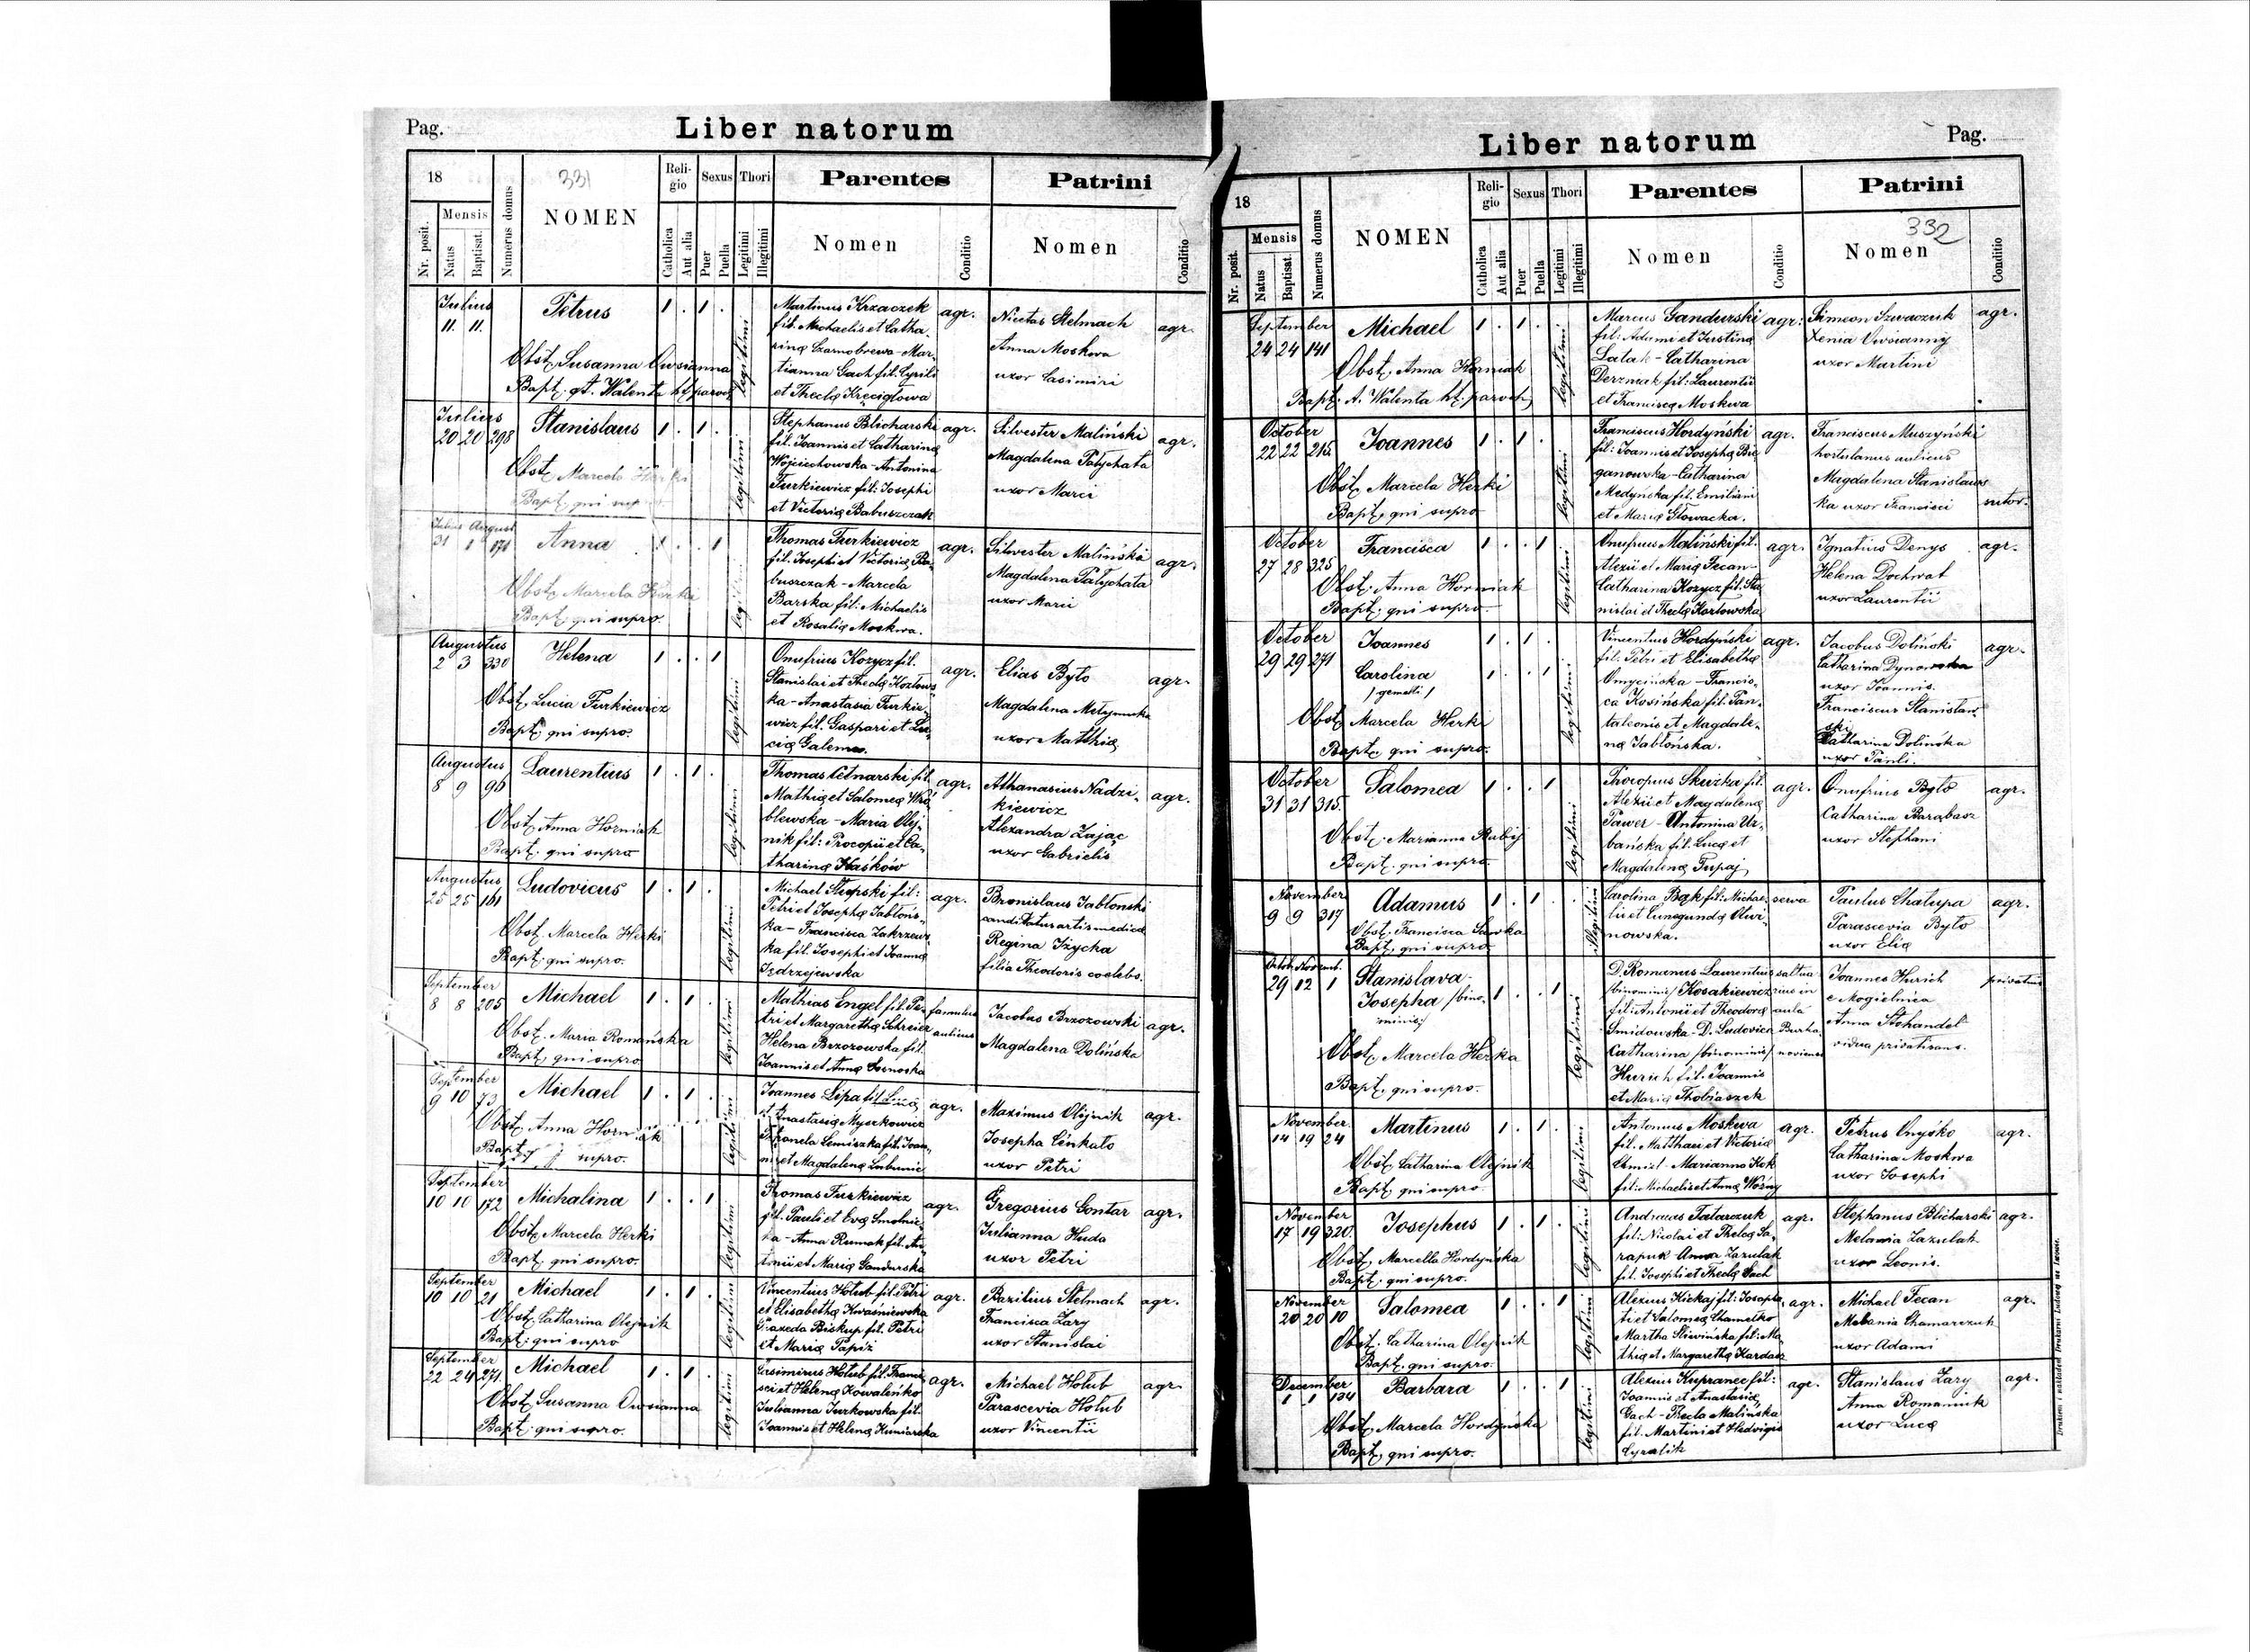 Pag.
Liber natorum
18
331
Mensis
Nr. posit.
Natus
Baptisat.
Numerus domus
NOMEN
Religio
Catholica
Aut alia
Sexus
Puer
Puella
Thori
Legitimi
Illegitimi
Parentes
Nomen
Conditio
Patrini
Nomen
Conditio
Julius
11. 11.
Petrus
1 . 1 .
legitimi
Obst. Susanna Owsianna
Bapt. A. Walenta
Martinus Krzaczek
fil. Michaelis et Catha-
rinę Czarnobrewa - Mar-
tianna Gach fil. Cyrili
et Theclę Kręciglowa
agr.
Nicetas Stelmach
Anna Moskwa
uxor Casimiri
agr.
Julius
20 20 298
Stanislaus
1 . 1 .
legitimi
Obst. Marcela Herki
Bapt. qui supro
Stephanus Blicharski
fil. Joannis et Catharinę
Wojciechowska - Antonina
Turkiewicz fil: Josephi
et Victorię Babuszczak
agr.
Silvester Maliński
Magdalena Patychata
uxor Marci
agr.
Julius August
31 1 171
Anna
1 . . 1
legitimi
Obst. Marcela Herki
Bapt. qui supro.
Thomas Turkiewicz
fil. Josephi et Victorię Ba-
buszczak - Marcela
Barska fil: Michaelis
et Rosalię Moskwa.
agr.
Silvester Maliński
Magdalena Patychata
uxor Marii
agr.
Augustus
2 3 330
Helena
1 . . 1
legitimi
Obst. Lucia Turkiewicz
Bapt. qui supro.
Onufrius Kozycz fil.
Stanislai et Theclę Kozłows-
ka - Anastasia Turkie-
wicz fil. Gaspari et Lu-
cię Galema.
agr.
Elias Byto
Magdalena
uxor Matthię
agr.
Augustus
8 9 96
Laurentius
1 . 1 .
legitimi
Obst. Anna Horniak
Bapt. qui supro
Thomas Cetnarski fil.
Mathię et Salomeę Wró-
blewska - Maria Olej-
nik fil: Procopii et Ca-
tharinę Haśków
agr.
Athanasius Nadzi-
kiewicz
Alexandra Zając
uxor Gabrielis
agr.
Augustus
25 25 161
Ludovicus
1 . 1 .
legitimi
Obst. Marcela Herki
Bapt. qui supro.
Michael Słupski fil:
Petri et Josephę Jabłońs-
ka - Francisca Zakrzews-
ka fil. Josephi et Joannę
Jędrzejewska
agr.
Bronislaus Jabłonski
candidatus artis medicę
Regina Iżycka
filia Theodoris coelebs.
September
8 8 205
Michael
1 . 1 .
legitimi
Obst. Maria Romańska
Bapt. qui supro
Mathias Engel fil. Pe-
tri et Margarethę Schreier
Helena Brzozowska fil.
Joannis et Annę Sosnoska
famulus
aulicus
Jacobus Brzozowski
Magdalena Dolińska
agr.
September
9 10 73
Michael
1 . 1 .
legitimi
Obst. Anna Horniak
Bapt. qui supro.
Joannes Lipa fil. Lucę
et Anastasię Myszkowicz
Petronela Lemiszka fil. Joan-
nis et Magdalenę
agr.
Maximus Olijnik
Josepha Cenkało
uxor Petri
agr.
September
10 10 172
Michalina
1 . . 1
legitimi
Obst. Marcela Herki
Bapt. qui supro.
Thomas Turkiewicz
fil. Pauli et Evę Smolnic-
ka - Anna Rumak fil. An-
tonii et Marię Gandurska
agr.
Gregorius Gontar
Julianna Huda
uxor Petri
agr.
September
10 10 21
Michael
1 . 1 .
legitimi
Obst. Catharina Olejnik
Bapt. qui supro
Vincentius Holub fil. Petri
et Elisabethę Kwasniewska
Praxeda Biskup fil. Petri
et Marię Papiż
agr.
Bazilius Stelmach
Francisca Zary
uxor Stanislai
agr.
September
22 24 271.
Michael
1 . 1 .
legitimi
Obst. Susanna Owsianna
Bapt. qui supro.
Casimirus Holub fil. Franci-
sci et Helenę Kowaleńko
Julianna Jurkowska fil.
Joannis et Helenę Kuniarska
agr.
Michael Holub
Parascevia Holub
uxor Vincentii
agr.
Liber natorum
Pag.
18
Mensis
Nr. posit.
Natus
Baptisat.
Numerus domus
NOMEN
Religio
Catholica
Aut alia
Sexus
Puer
Puella
Thori
Legitimi
Illegitimi
Parentes
Nomen
Conditio
Patrini
332
Nomen
Conditio
September
24 24 141
Michael
1 . 1 .
legitimi
Obst. Anna Horniak
Bapt. A. Walenta
Marcus Gandurski
fil: Adami et Justinę
Lalak - Catharina
Derzniak fil: Laurentii
et Franciscę Moskwa
agr.
Simeon Szwaczuk
Xenia Owsianny
uxor Martini
agr.
October
22 22 215.
Joannes
1 . 1 .
legitimi
Obst. Marcela Herki
Bapt. qui supro
Franciscus Hordyński
fil: Joannis et Josephę Bie-
ganowska - Catharina
Medyńska fil. Emiliani
et Marię Głowacka.
agr.
Franciscus Muszyński
hortulanus aulicus
Magdalena Stanislaws
ka uxor Francisci
sutor.
October
27 28 325
Francisca
1 . . 1
legitimi
Obst. Anna Horniak
Bapt. qui supro.
Onufrius Maliński fil.
Alexii et Marię Fecan -
Catharina Kozycz fil. Sta-
nislai et Theclę Kozłowska
agr.
Ignatius Denys
Helena Dochwat
uxor Laurentii
agr.
October
29 29 271
Joannes
1 . 1 .
Carolina
1 . . 1
/gemelli/
legitimi
Obst. Marcela Herki
Bapt. qui supro.
Vincentius Hordyński
fil. Petri et Elisabethę
Omycińska - Francis-
ca Kosińska fil. Pan-
taleonis et Magdale-
nę Jabłońska.
agr.
Jacobus Doliński
Catharina
uxor Joannis.
Franciscus Stanisław-
ski
Catharina Dolińska
uxor Pauli.
agr.
October
31 31 315.
Salomea
1 . . 1
legitimi
Obst. Marianna Rubij
Bapt. qui supro.
Procopius Skurka fil.
Alexii et Magdalenę
Pawer - Antonina Ur-
bańska fil. Lucę et
Magdalenę Tupaj
agr.
Onufrius Byto
Catharina Barabasz
uxor Stephani
agr.
November
9 9 317
Adamus
1 . 1 .
illegitimi
Obst. Francisca Sawka
Bapt. qui supro
Carolina Bąk fil: Michae-
lis et Cunegundę Oliwi-
nowska.
serva
Paulus Chalupa
Parascevia Byto
uxor Elię
agr.
Octob. Novemb.
29 12 1
Stanislava-
Josepha /bino-
minis/
1 . . 1
legitimi
Obst. Marcela Herka
Bapt. qui supro.
D. Romanus Laurentius
/binominis/ Kosakiewicz
fil. Antonii et Theodorę
Smidowska - D. Ludovica
Catharina /binominis/
Hurich fil. Joannis
et Marię Thobiaszek
saltua-
rius in
aula
Joannes Hurich
e Mogielnica
Anna Stohandel
vidua privatisans.
privatus
November
14 19 24
Martinus
1 . 1 .
legitimi
Obst. Catharina Olejnik
Bapt. qui supro
Antonius Moskwa
fil. Matthaei et Victorię
Chmiel - Marianna Kok
fil: Michaelis et Annę Woźny
agr.
Petrus Onyśko
Catharina Moskwa
uxor Josephi
agr.
November
17 19 320.
Josephus
1 . 1 .
legitimi
Obst. Marcella Hordyńska
Bapt. qui supro.
Andreas Tatarczuk
fil: Nicolai et Theclę Sa-
rapuk Anna Zazulak
fil. Josephi et Theclę Gach
agr.
Stephanus Blicharski
Melania Zazulak
uxor Leonis.
agr.
November
20 20 10
Salomea
1 . . 1
legitimi
Obst. Catharina Olejnik
Bapt. qui supro.
Alexius Kickaj fil: Josapha-
ti et Salomeę Chamećko
Martha Sliwińska fil: Ma-
thię et Margarethę Kardasz
agr.
Michael Fecan
Melania Chamarczuk
uxor Adami
agr.
December
1 1 134
Barbara
1 . . 1
legitimi
Obst. Marcela Hordyńska
Bapt. qui supro.
Alexius Kupranec fil:
Joannis et Anastasię
Gach - Thecla Malińska
fil. Martini et Hedvigis
Cyralik
agr.
Stanislaus Zary
Anna Romaniuk
uxor Lucę
agr.